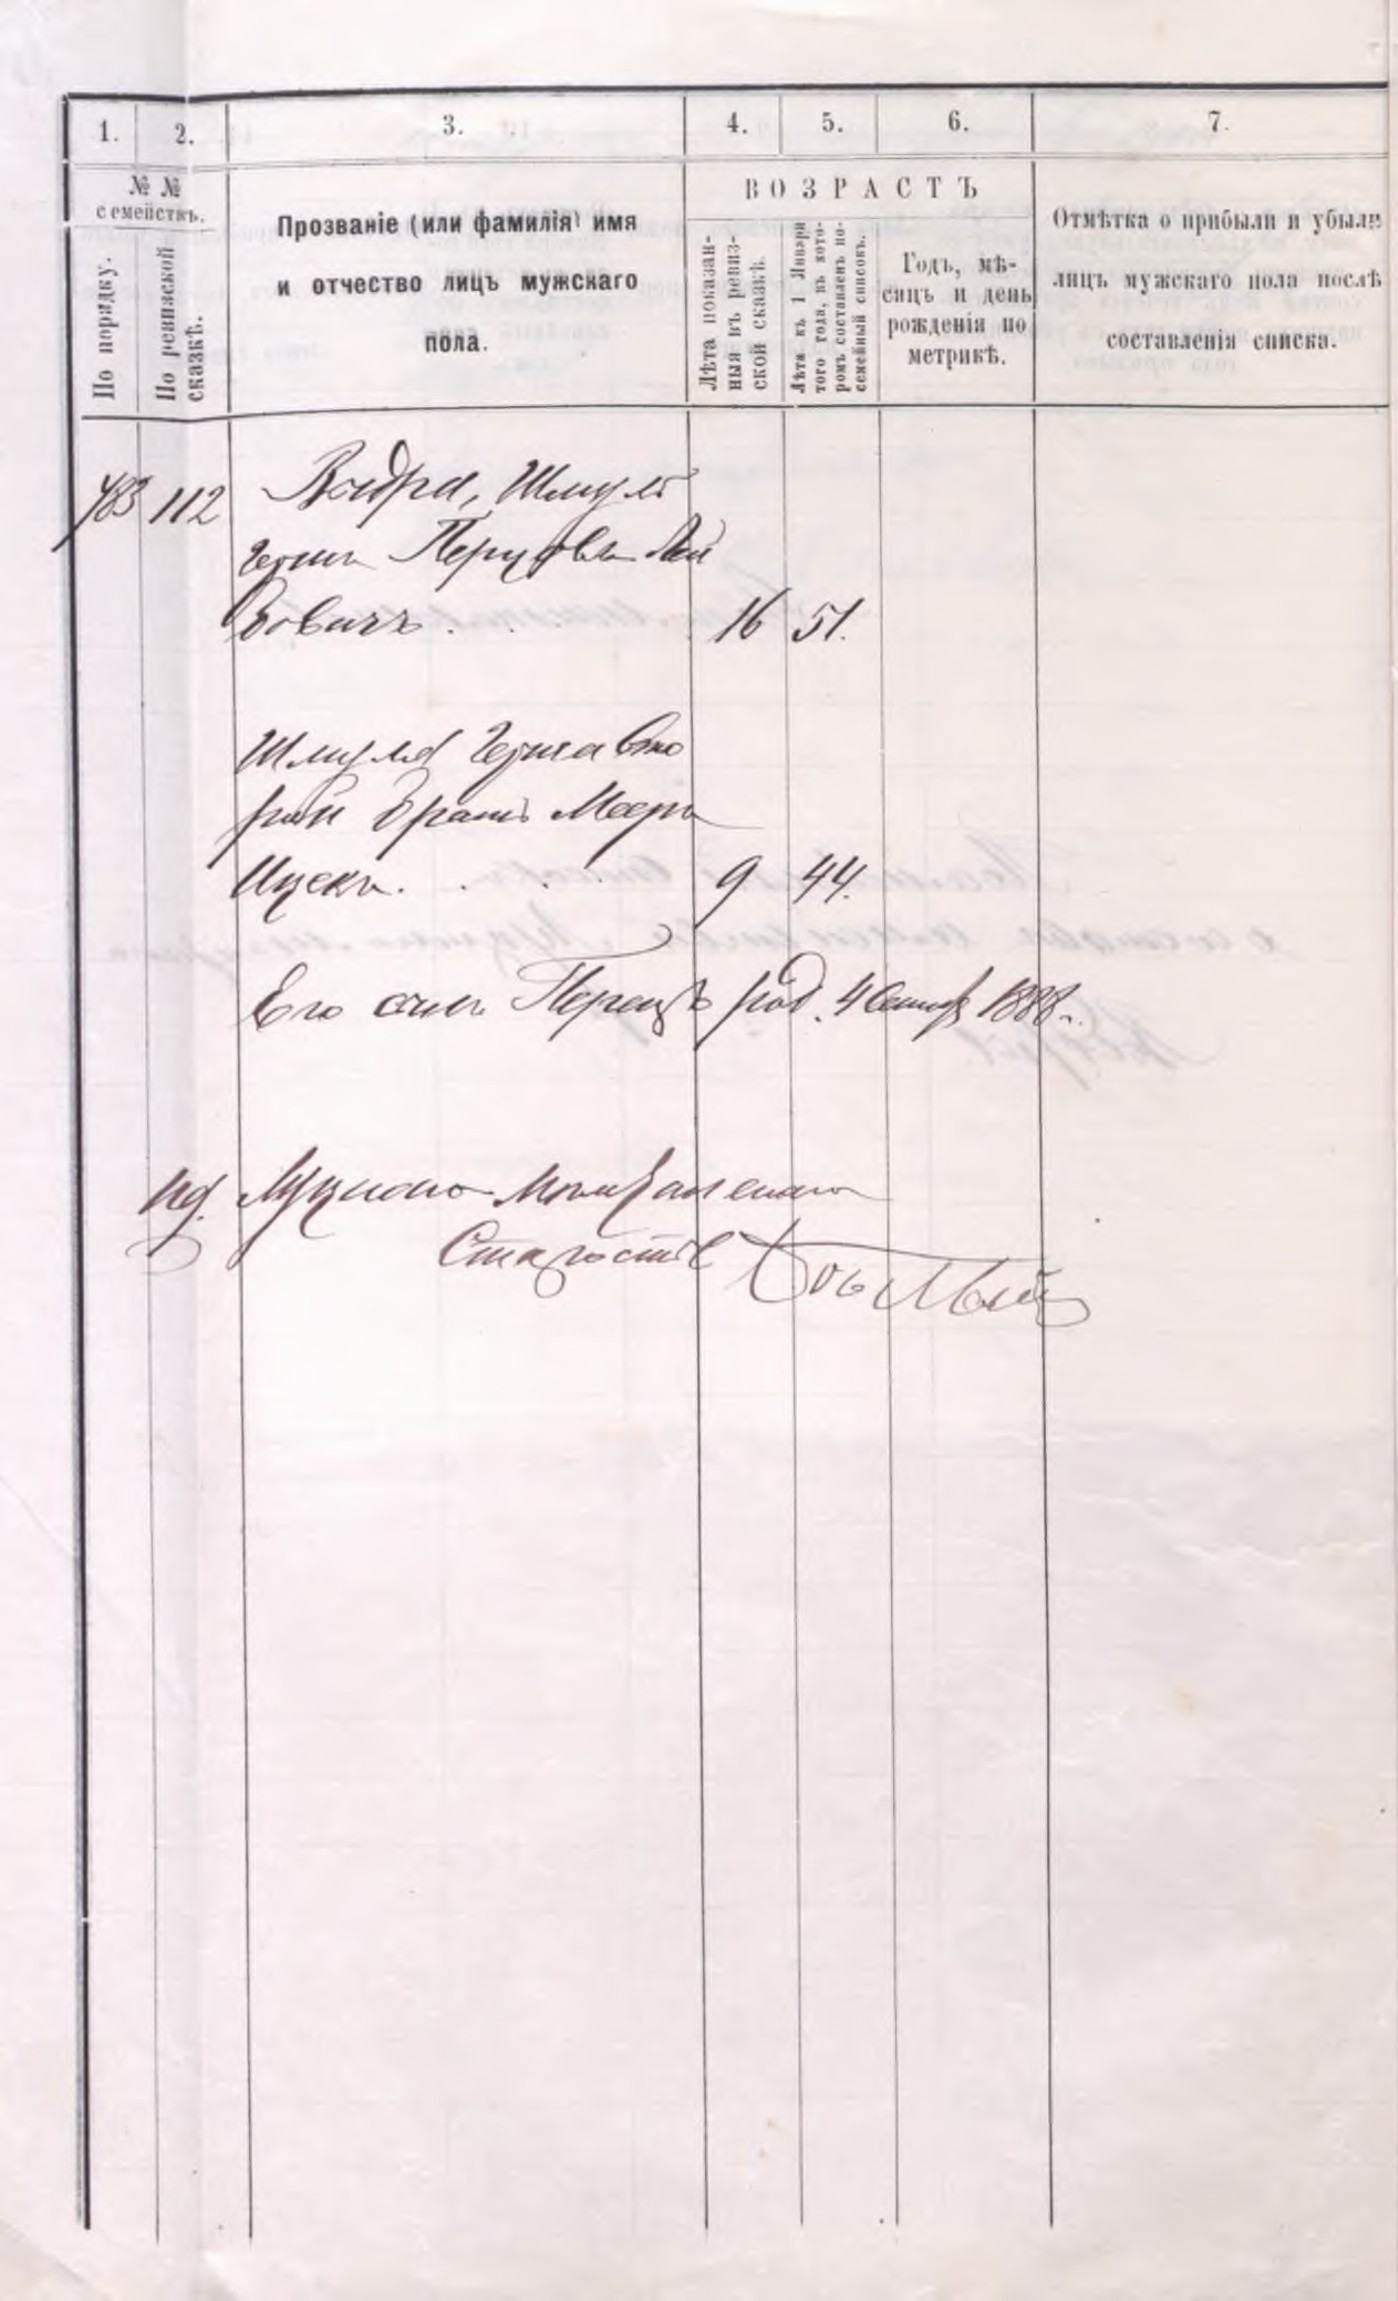 1. 2. 3. 4. 5. 6. 7.
№ №
семействъ.
По порядку.
По ревизской
сказкѣ.
Прозваніе (или фамилія) имя
и отчество лицъ мужскаго
пола.
ВОЗРАСТЪ
Лѣта показан-
ныя въ ревиз-
ской сказкѣ.
Лѣта къ 1 Января
того года, въ кото-
ромъ составленъ по-
семейный списокъ.
Годъ, мѣ-
сяцъ и день
рожденія по
метрикѣ.
Отмѣтка о прибыли и убыли
лицъ мужскаго пола послѣ
составленія списка.
483 112 Шмуль
Герши Перцовъ Лей
бовичъ. 16 51.
Шмуля Герша вто
рой братъ Мееръ
Ицекъ. 9 44.
Его сынъ Перецъ род. 4 Сентяб 1888 г.
Староста